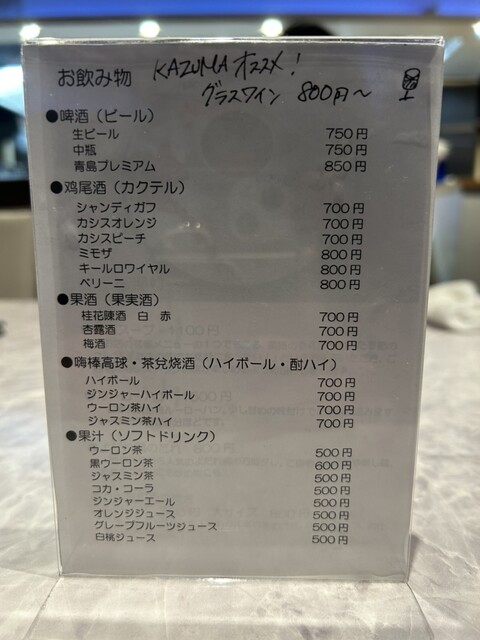 お飲み物 KAZUMAオススメ!
グラスワイン 800円〜
●啤酒(ビール)
生ビール 750円
中瓶 750円
青島プレミアム 850円
●鸡尾酒(カクテル)
シャンディガフ 700円
カシスオレンジ 700円
カシスピーチ 700円
ミモザ 800円
キールロワイヤル 800円
ベリーニ 800円
●果酒(果実酒)
桂花陳酒 白 赤 700円
杏露酒 700円
梅酒 700円
●嗨棒高球・茶兌烧酒(ハイボール・酎ハイ)
ハイボール 700円
ジンジャーハイボール 700円
ウーロン茶ハイ 700円
ジャスミン茶ハイ 700円
●果汁(ソフトドリンク)
ウーロン茶 500円
黒ウーロン茶 600円
ジャスミン茶 500円
コカ・コーラ 500円
ジンジャーエール 500円
オレンジジュース 500円
グレープフルーツジュース 500円
白桃ジュース 500円